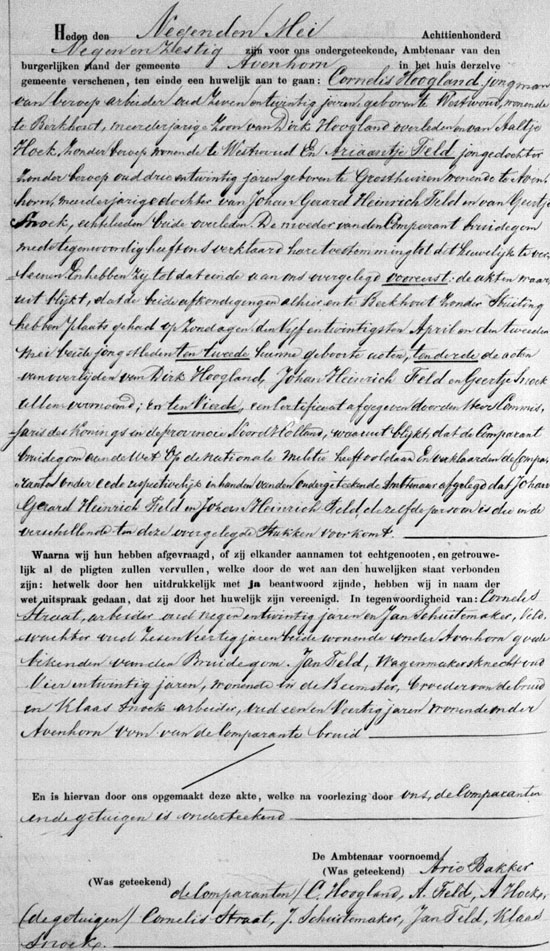 Heden den Negenden Mei Achttienhonderd
Negen en Zestig zijn voor ons ondergeteekende, Ambtenaar van den
burgerlijken stand der gemeente Avenhorn in het huis derzelve
gemeente verschenen, ten einde een huwelijk aan te gaan: Cornelis Hoogland, jongman
van beroep arbeider oud zeven en twintig jaren, geboren te Westwoud, wonende
te Berkhout, meerderjarige Zoon van Dirk Hoogland overleden en van Aaltje
Hoek, zonder beroep wonende te Westwoud En Ariaantje Feld jongedochter
zonder beroep oud drie en twintig jaren geboren te Grosthuizen wonende te Aven-
horn, meerderjarige dochter van Johan Gerard Heinrich Feld en van Geertje
Snoek, echtelieden beide overleden. De moeder van den Comparant bruidegom
mede tegenwoordig heeft ons verklaard hare toestemming tot dit huwelijk te ver-
leenen. En hebben zij tot dat einde aan ons overgelegd vooreerst: de akten waar
uit blijkt, dat de beide afkondigingen alhier en te Berkhout zonder stuiting
hebben plaats gehad op Zondagen den vijf en twintigsten April en den tweeden
mei beide jongstleden ten tweede hunne geboorte acten, ten derde de acten
van overlijden van Dirk Hoogland, Johan Heinrich Feld en Geertje Snoek
allen vernoemd; en ten Vierde, een Certificaat afgegeven door den Heer Commis-
saris des Konings in de provincie Noord Holland, waaruit blijkt, dat de Comparant
bruidegom aan de Wet op de nationale Militie heeft voldaan En verklaarden de Compa-
ranten onder eede respectivelijk in handen van den ondergeteekende Ambtenaar afgelegd dat Johan
Gerard Heinrich Feld en Johan Heinrich Feld dezelfde persoon is die in de
verschillende ten deze overgelegde Stukken voorkomt.
Waarna wij hun hebben afgevraagd, of zij elkander aannamen tot echtgenooten, en getrouwe-
lijk al de pligten zullen vervullen, welke door de wet aan den huwelijken staat verbonden
zijn: hetwelk door hen uitdrukkelijk met ja beantwoord zijnde, hebben wij in naam der
wet uitspraak gedaan, dat zij door het huwelijk zijn vereenigd. In tegenwoordigheid van: Cornelis
Straat, arbeider oud negen en twintig jaren en Jan Schuitemaker, Veld-
wachter oud Zes en Viertig jaren beide wonende onder Avenhorn goede
bekenden van den Bruidegom. Jan Feld, Wagenmakersknecht oud
Vier en twintig jaren, wonende in de Beemster, broeder van de bruid
en Klaas Snoek arbeider, oud een en Veertig jaren wonende onder
Avenhorn oom van de Comparante bruid
En is hiervan door ons opgemaakt deze akte, welke na voorlezing door ons, de Comparanten
en de getuigen is onderteekend
De Ambtenaar voornoemd,
(Was geteekend) Arie Bakker
(Was geteekend)
de Comparanten / C. Hoogland, A. Feld, A Hoek,
(de getuigen) Cornelis Straat, J. Schuitemaker, Jan Feld, Klaas
Snoek.